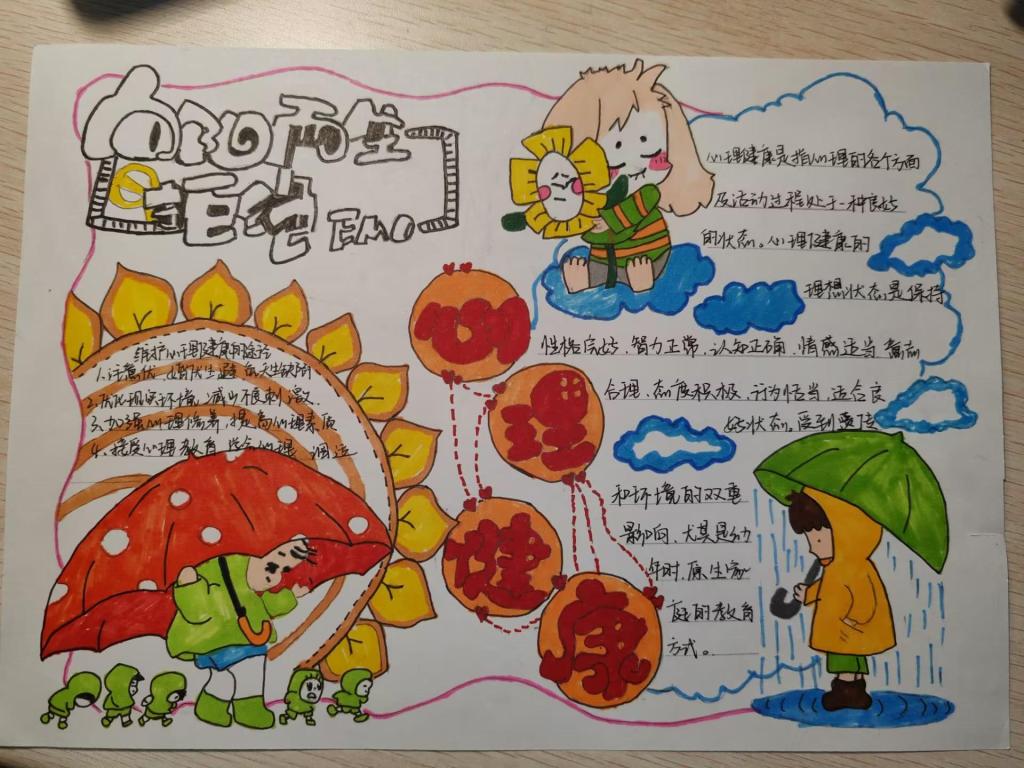 向阳而生
拒绝EMO
心理健康
维护心理健康的途径
1.注意优、婚优生避免先天缺陷
2.优化现实环境,减少不良刺激。
3.加强心理保养,提高心理素质
4、心理教育 心理调适
心理健康是指心理的各个方面
及活动过程处于一种良好
的状态。心理健康的
理想状态是保持
性格完好、智力正常、认知正确,情感适当意志
合理、态度积极、行为恰当、适合良
好状态。受到遗传
和环境的双重
影响,尤其是幼
年时,原生家
庭的教育
方式。